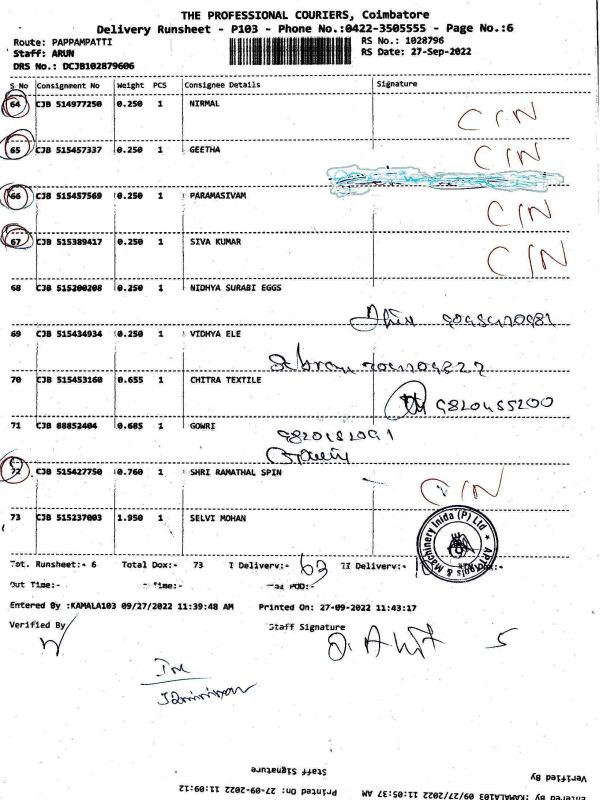 THE PROFESSIONAL COURIERS, Coimbatore
Delivery Runsheet - P103 - Phone No.:0422-3505555 - Page No.:6
Route: PAPPAMPATTI
RS No.: 1028796
Staff: ARUN
RS Date: 27-Sep-2022
DRS No.: DCJB102879606
S No Consignment No Weight PCS Consignee Details Signature
64 CJB 514977250 0.250 1 NIRMAL
CIN
65 CJB 515457337 0.250 1 GEETHA
CIN
66 CJB 515457569 0.250 1 PARAMASIVAM
CIN
67 CJB 515389417 0.250 1 SIVA KUMAR
CIN
68 CJB 515200208 0.250 1 NIDHYA SURABI EGGS
69 CJB 515434934 0.250 1 VIDHYA ELE
70 CJB 515453160 0.655 1 CHITRA TEXTILE
9820455200
71 CJB 88852404 0.685 1 GOWRI
72 CJB 515427750 0.760 1 SHRI RAMATHAL SPIN
CIN
73 CJB 515237003 1.950 1 SELVI MOHAN
Machinery Inida (P) Ltd
Tot. Runsheet:- 6 Total Dox:- 73 I Delivery:- 63 II Delivery:- 10
Out Time:- Time:- POD:-
Entered By :KAMALA103 09/27/2022 11:39:48 AM Printed On: 27-09-2022 11:43:17
Verified By Staff Signature
5
Staff Signature
Verified By
Printed On: 27-09-2022 11:09:11
Entered By :KAMALA103 09/27/2022 11:05:37 AM